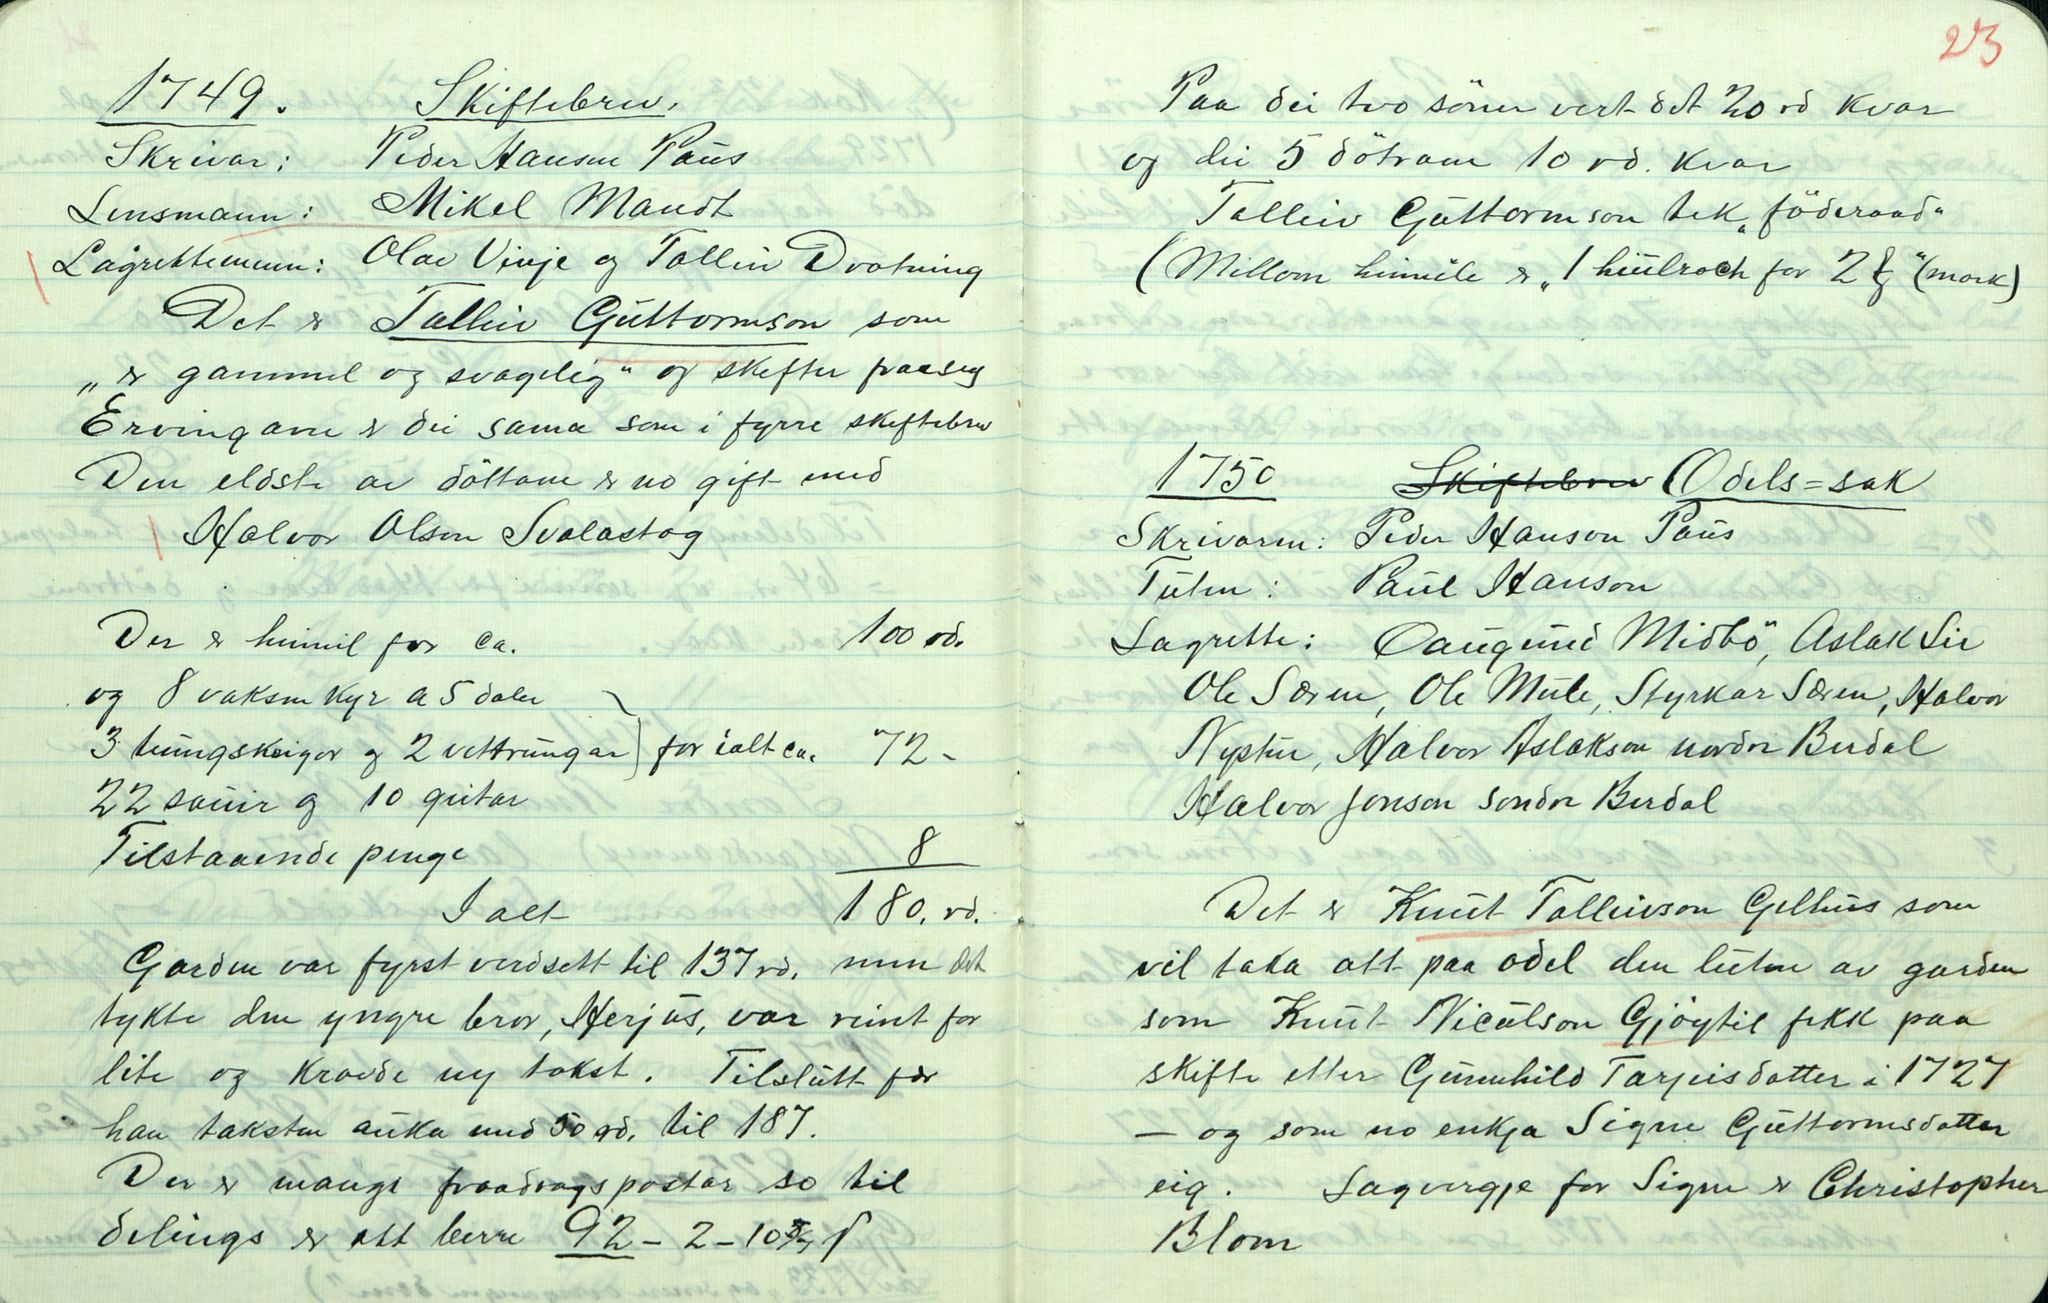 1749. Skiftebrev.
Skrivar: Peder Hansen Paus
Lensmann: Mikel Mandt
Lagrettemenn: Olav Vinje og Tolleiv Dvotning
Det er Tolleiv Guttormson som
„er gammel og svagelig" og skifter fraa seg
Ervingane er dei sama som i fyrre skiftebrev
Den eldste av döttane er no gift med
Halvor Olson Svalastog
Der er himil for ca. 100 rd.
og 8 vaksne kyr a 5 daler
3 tungskvigor og 2 vettrungar } for ialt ca. 72 -
22 sauir og 10 geitar
Tilstaaende penge 8
I alt 180. rd.
Garden var fyrst verdsett til 137 rd. men det
tykte den yngre bror, Herjus, var reint for
lite og kravde ny takst. Tilslutt fær
han taksten auka med 50 rd. til 187.
Der er mange fraadragspostar so til
delings er att berre 92 - 2 - 10 3/7 ſ
23
Paa dei tvo söner vert det 20 rd kvar
og dei 5 dötrane 10 rd. kvar
Tolleiv Guttormson tek „föderaad"
(Millom himile er „1 hiulroch for 2 ℔" (mork)
1750 Skiftebrev Odels=sak
Skrivaren: Peder Hanson Paus
Futen: Paul Hanson
Lagrette: Aaugund Midbö, Aslak Lie
Ole Særen, Ole Mule, Styrkar Særen, Halvor
Nystu, Halvor Aslakson nordre Berdal
Halvor Jonson söndre Berdal
Det er Knut Tolleivson Gelhus som
vil taka att paa odel den luten av garden
som Knut Niculson Gjöytil fekk paa
skifte etter Gunnhild Tarjeisdatter i 1727
— og som no enkja Signe Guttormsdatter
eig. Lagvergje for Signe er Christopher
Blom